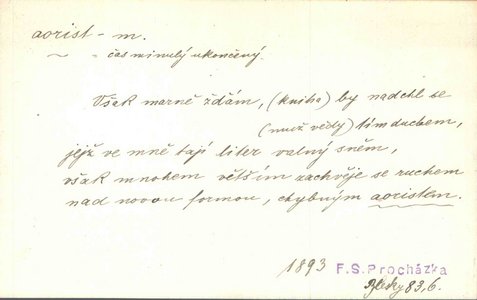 aorist – m.
~ - čas minulý ukončený.
Však marně ždám, (kniha) by nadchl se
(muž vědy) tím duchem,
jejž ve mně tají liter valný sněm,
však mnohem větším zachvěje se ruchem
nad novou formou, chybným aoristem.
1893 F. S. Procházka
83, 6.